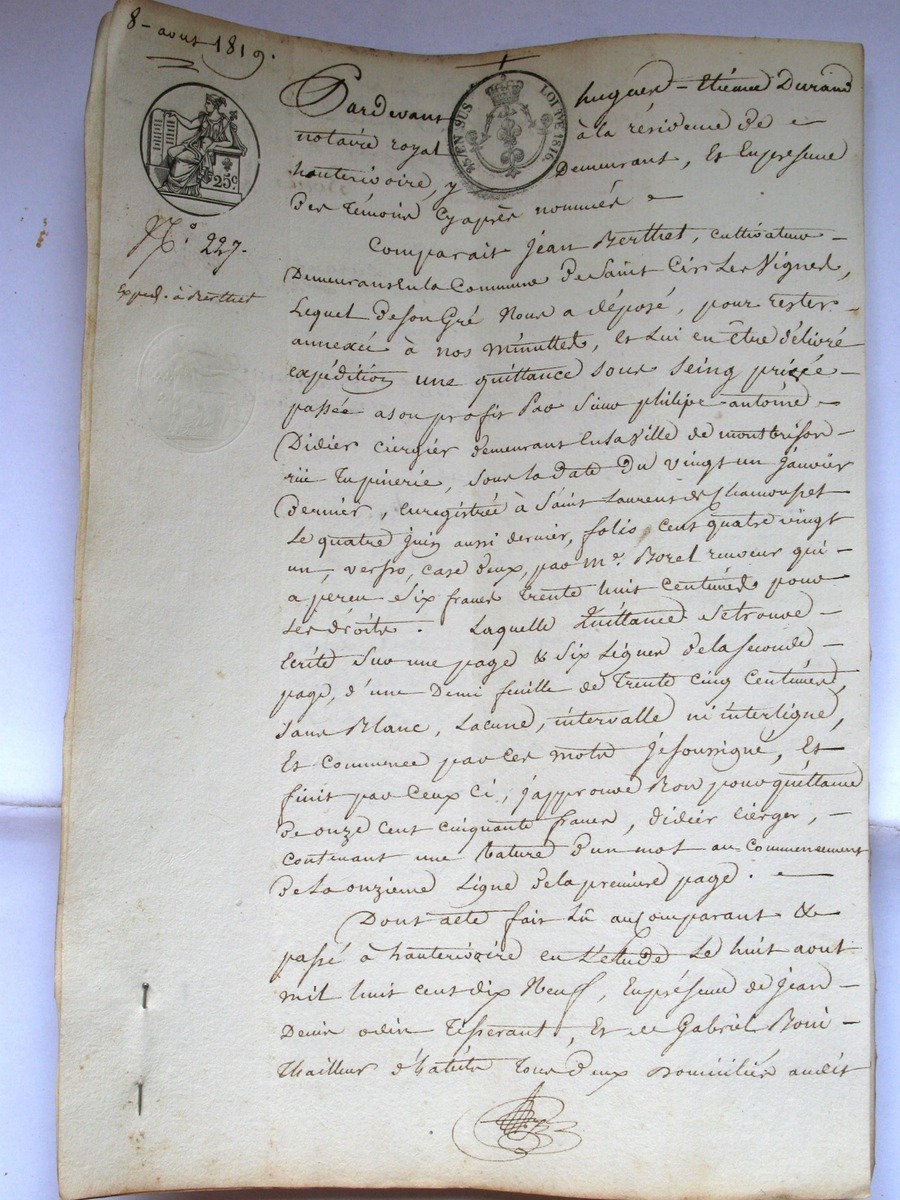 8 - aout 1819.
Pardevant hugues - Etienne Durand
notaire royal à la résidence de
hauterivoire, y Demeurant, Et En présence
Des Témoins Cyaprès nommés
25c
LOI DE 1816.
N.o 227.
Exped. à Berthet
Comparait Jean Berthet, cultivateur
Demeurant En la Commune de Saint Cir Les Vignes,
Lequel de son Gré Nous a déposé, pour rester
annexée à nos minuttes, Et Lui en être délivré
expédition une quittance sous seing privée
passée a son profit Par Sieur philipe antoine
Didier ciergier demeurant En la Ville de montbrison
rüe Tupinerie, sous la date du vingt un Janvier
Dernier, Enregistrée à Saint Laurent de Chamousset
Le quatre Juin aussi dernier, folio cent quatre vingt
un, verso, case deux, par m.e Borel receveur qui
a perçu Six francs Trente huit Centimes pour
Les droits. Laquelle Quittance Se trouve
Ecrite Sur une page & Six Lignes de la seconde
page, d'une Demi feuille de Trente Cinq Centimes,
Sans Blanc, Lacune, intervalle ni interligne,
Et Commence par Ces mots Je soussigné, Et
finit par Ceux Ci, j'approuve Bon pour quittance
De onze Cent Cinquante francs, Didier Cierger,
Contenant une Rature d'un mot au Commencement
de La onzieme Ligne de la premiere page.
Dont acte fait Lû au Comparant &
passé à hauterivoire en L'etude Le huit aout
mil huit cent dix Neuf, En présence de Jean
Denis odin Tisserant, Et de Gabriel Boni
Thailleur d'habits Tous deux Domiciliés audit